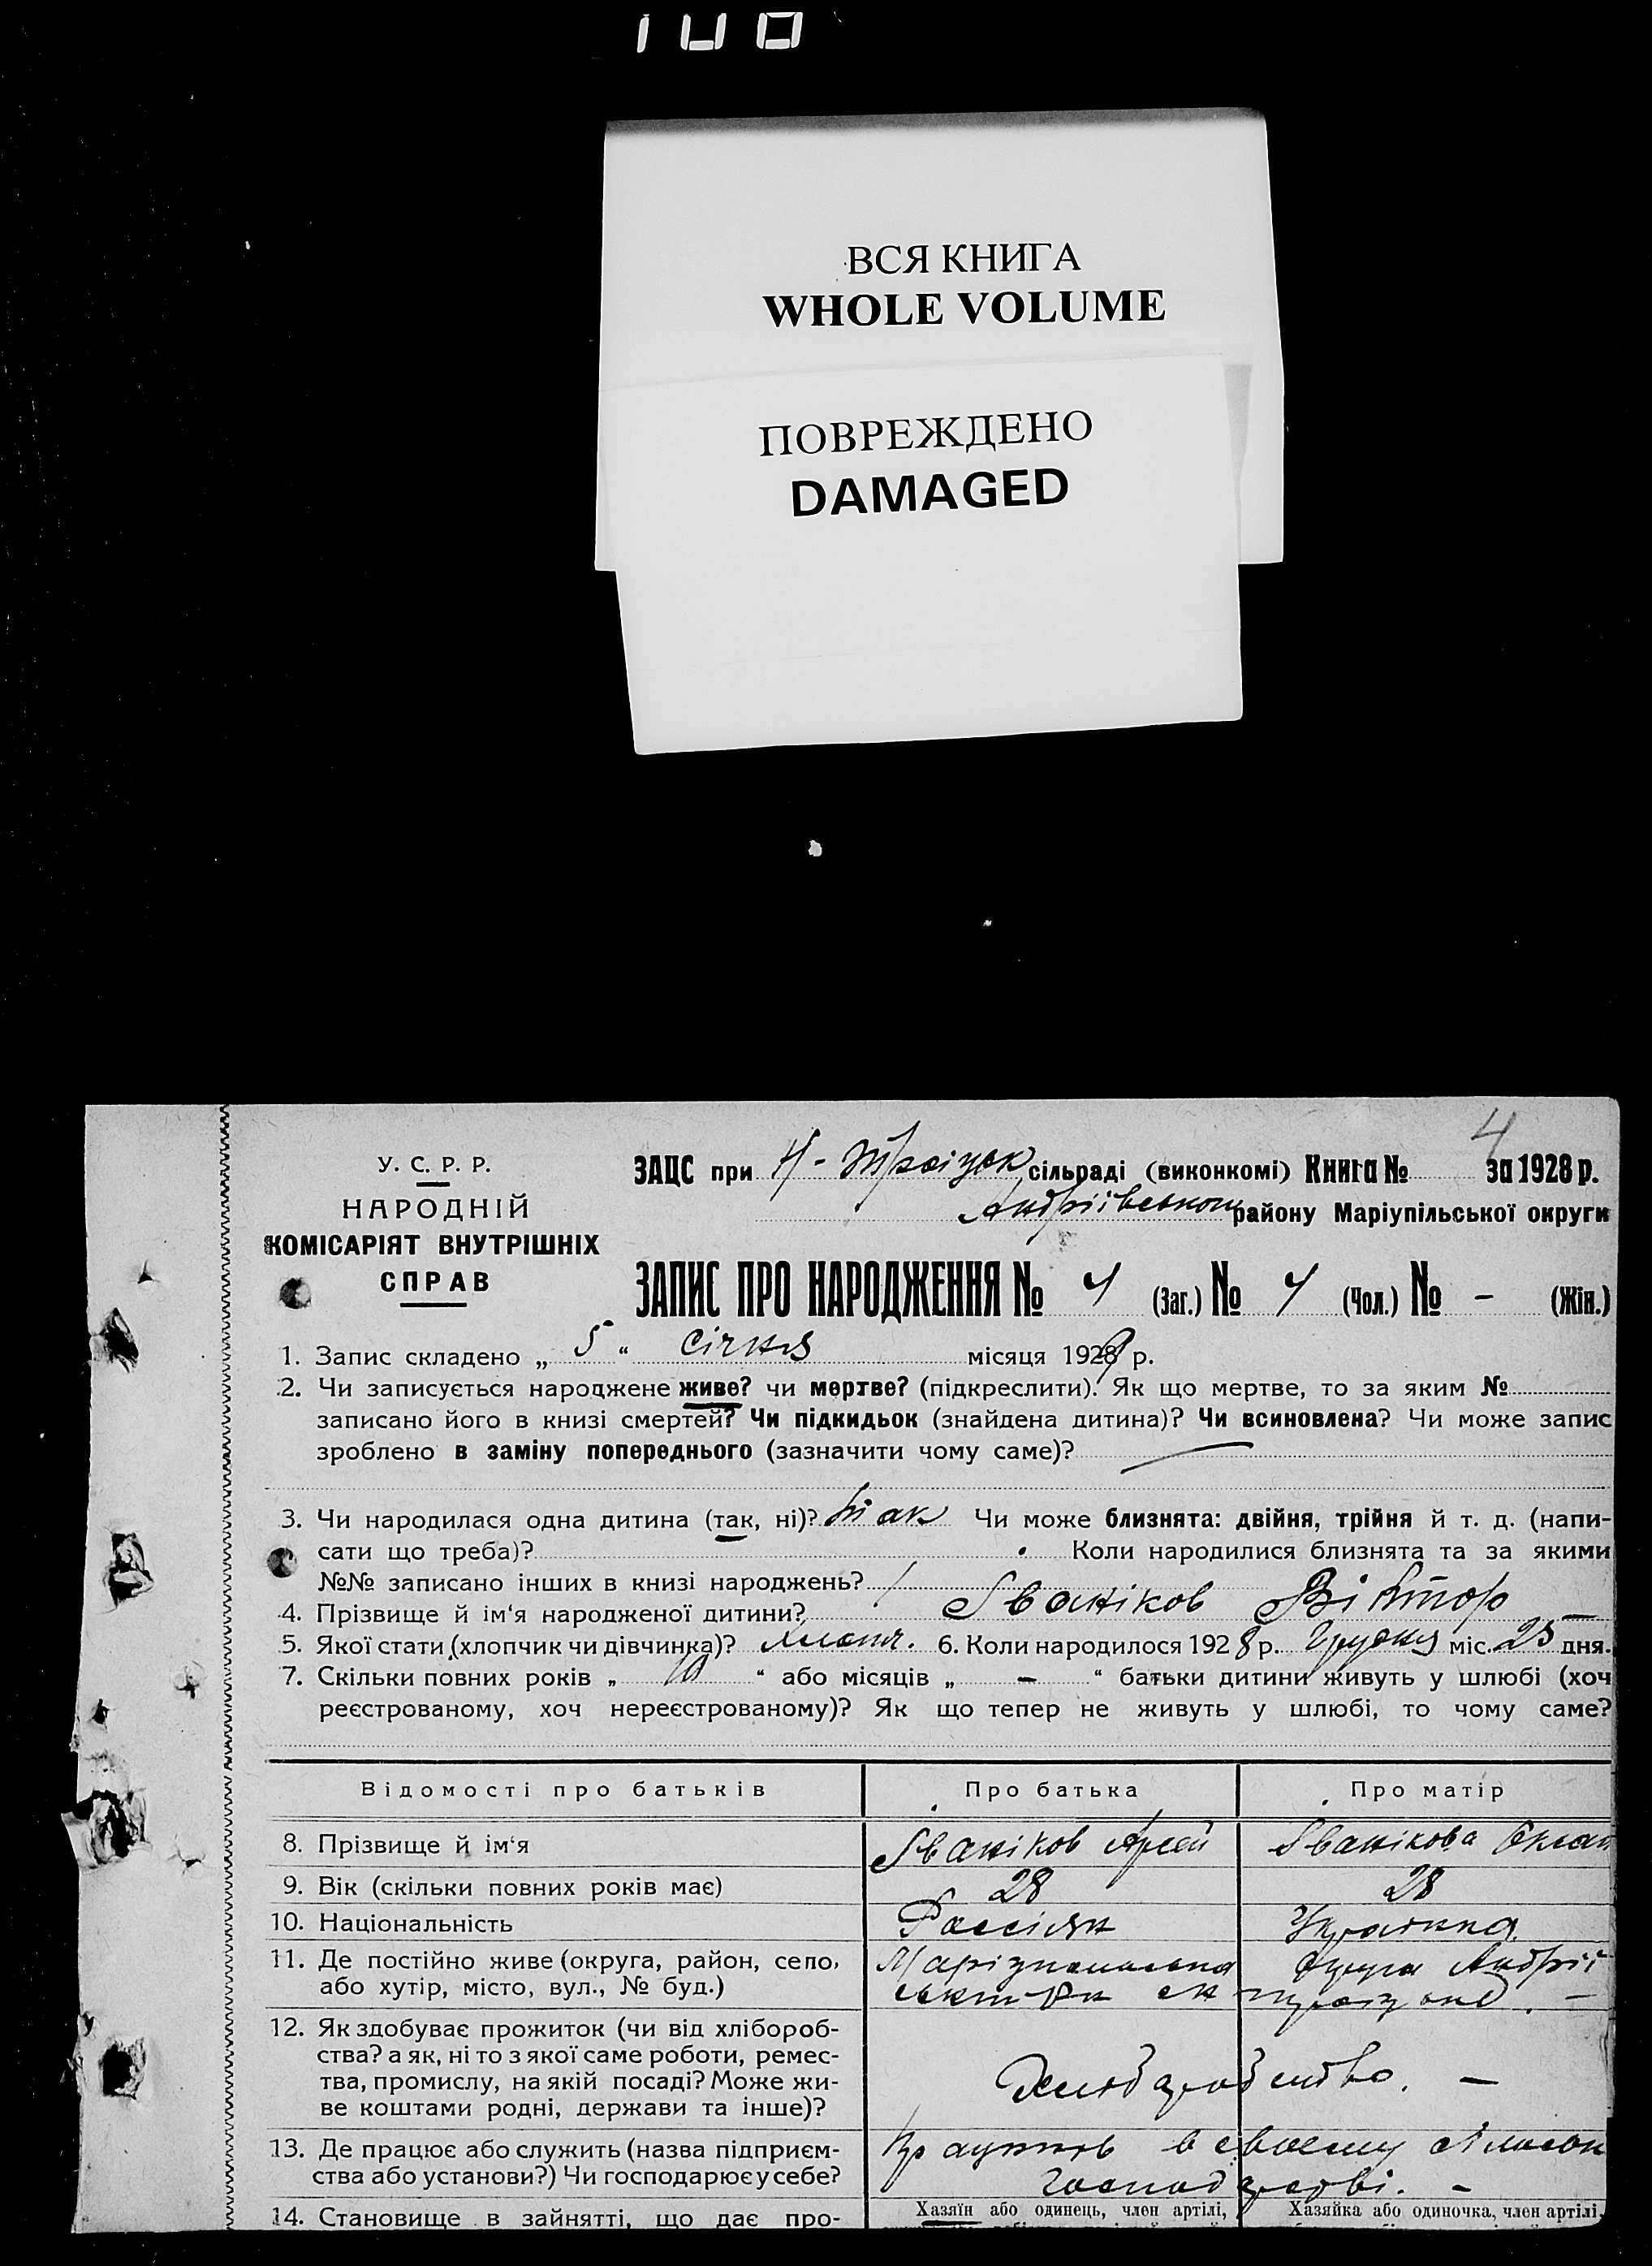 ВСЯ КНИГА
WHOLE VOLUME
ПОВРЕЖДЕНО
DAMAGED
4
У. С. Р. Р.
НАРОДНІЙ
КОМІСАРІЯТ ВНУТРІШНІХ
СПРАВ
ЗАЦС при Н-Троїцьк сільраді (виконкомі) Книга № за 1928 р.
Андріївському району Маріупільської округи
ЗАПИС ПРО НАРОДЖЕННЯ № 4 (Заг.) № 4 (Чол.) № - (Жін.)
1. Запис складено „ 5 “ січня місяця 1929 р.
2. Чи записується народжене живе? чи мертве? (підкреслити). Як що мертве, то за яким №
записано його в книзі смертей? Чи підкидьок (знайдена дитина)? Чи всиновлена? Чи може запис
зроблено в заміну попереднього (зазначити чому саме)?
3. Чи народилася одна дитина (так, ні)? так Чи може близнята: двійня, трійня й т. д. (напи-
сати що треба)? Коли народилися близнята та за якими
№№ записано інших в книзі народжень?
4. Прізвище й ім‘я народженої дитини? Іваніков Віктор —
5. Якої стати (хлопчик чи дівчинка)? 6. Коли народилося 1928 р. Грудня міс. 25 дня.
7. Скільки повних років „ 10 “ або місяців „ - “ батьки дитини живуть у шлюбі (хоч
реєстрованому, хоч нереєстрованому)? Як що тепер не живуть у шлюбі, то чому саме?
Відомості про батьків Про батька Про матір
8. Прізвище й ім‘я Іваніков Іванікова Оксан
9. Вік (скільки повних років має) 28 28
10. Національність Россіян Українка
11. Де постійно живе (округа, район, село, Маріупільська округа Андрії
або хутір, місто, вул., № буд.)
12. Як здобуває прожиток (чи від хлібороб-
ства? а як, ні то з якої саме роботи, ремес-
тва, промислу, на якій посаді? Може жи-
ве коштами родні, держави та інше)?
Хліборобство. —
13. Де працює або служить (назва підприєм- Працюють в своєму сільськ
ства або установи?) Чи господарює у себе? господарстві. -
14. Становище в зайнятті, що дає про- Хазяїн або одинець, член артілі, Хазяйка або одиночка, член артілі,